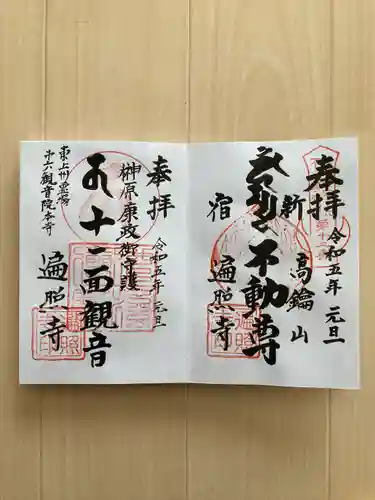 奉拝
令和五年 元旦
新高鑰山
不動尊
宿 遍照寺
奉拝
令和五年 元旦
榊原康政御守護
十一面観音
東上州霊場
十六観音院本寺
遍照寺